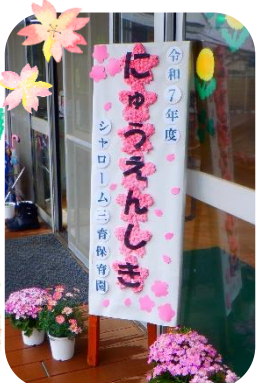 令和7年度
にゅうえんしき
シャローム三育保育園